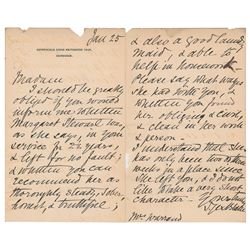 Jan 25
Madam
I should be greatly
obliged if you would
inform me whether
Margaret Stewart was
as she says, in your
service for 2½ years,
& left for no fault;
& whether you can
recommend her as
thoroughly steady, sober
honest, & truthful;
& also a good Laundry
maid, & able to
help in housework
Please say what wages
she had with you, &
whether you found
her obliging & civil,
& clean in her work
& person.
I understand that she
has only been two
weeks in a place since
she left you, & I do not
like to take a very short
character.
Mrs Warrand